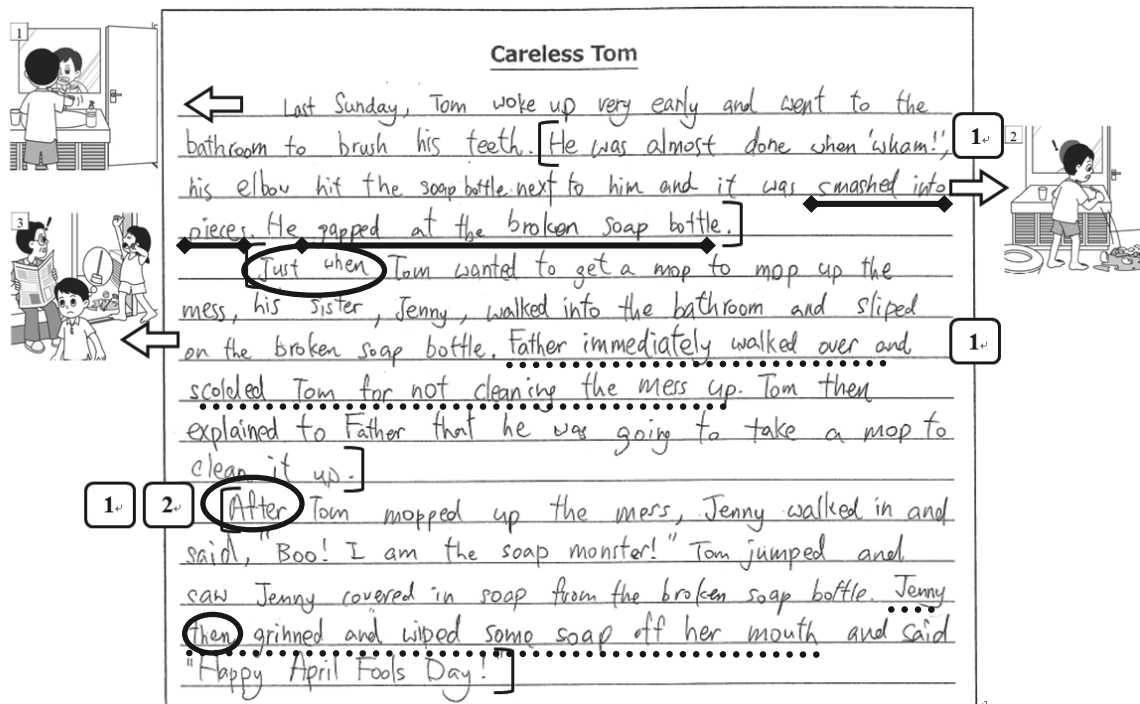 Careless Tom
1
Last Sunday, Tom woke up very early and went to the
bathroom to brush his teeth. [He was almost done when 'wham!',
1
2
his elbow hit the soap bottle next to him and it was smashed into
pieces. He gapped at the broken soap bottle.]
3
[Just when Tom wanted to get a mop to mop up the
mess, his sister, Jenny, walked into the bathroom and sliped
on the broken soap bottle. Father immediately walked over and
1
scolded Tom for not cleaning the mess up. Tom then
explained to Father that he was going to take a mop to
clean it up.]
1 2
[After Tom mopped up the mess, Jenny walked in and
said, "Boo! I am the soap monster!" Tom jumped and
saw Jenny covered in soap from the broken soap bottle. Jenny
then grinned and wiped some soap off her mouth and said
"Happy April Fools Day!"]